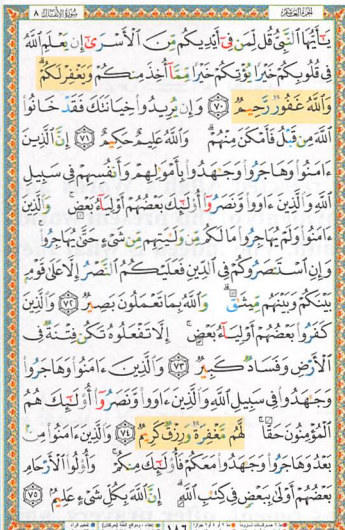 الجزء العاشر سورة الأنفال ٨
يَٰٓأَيُّهَا ٱلنَّبِيُّ قُل لِّمَن فِيٓ أَيۡدِيكُم مِّنَ ٱلۡأَسۡرَىٰٓ إِن يَعۡلَمِ ٱللَّهُ
فِي قُلُوبِكُمۡ خَيۡرٗا يُؤۡتِكُمۡ خَيۡرٗا مِّمَّآ أُخِذَ مِنكُمۡ وَيَغۡفِرۡ لَكُمۡۚ
وَٱللَّهُ غَفُورٞ رَّحِيمٞ ٧٠ وَإِن يُرِيدُواْ خِيَانَتَكَ فَقَدۡ خَانُواْ
ٱللَّهَ مِن قَبۡلُ فَأَمۡكَنَ مِنۡهُمۡۗ وَٱللَّهُ عَلِيمٌ حَكِيمٌ ٧١ إِنَّ ٱلَّذِينَ
ءَامَنُواْ وَهَاجَرُواْ وَجَٰهَدُواْ بِأَمۡوَٰلِهِمۡ وَأَنفُسِهِمۡ فِي سَبِيلِ
ٱللَّهِ وَٱلَّذِينَ ءَاوَواْ وَّنَصَرُوٓاْ أُوْلَٰٓئِكَ بَعۡضُهُمۡ أَوۡلِيَآءُ بَعۡضٖۚ وَٱلَّذِينَ
ءَامَنُواْ وَلَمۡ يُهَاجِرُواْ مَا لَكُم مِّن وَلَٰيَتِهِم مِّن شَيۡءٍ حَتَّىٰ يُهَاجِرُواْۚ
وَإِنِ ٱسۡتَنصَرُوكُمۡ فِي ٱلدِّينِ فَعَلَيۡكُمُ ٱلنَّصۡرُ إِلَّا عَلَىٰ قَوۡمِۭ
بَيۡنَكُمۡ وَبَيۡنَهُم مِّيثَٰقٞۗ وَٱللَّهُ بِمَا تَعۡمَلُونَ بَصِيرٞ ٧٢ وَٱلَّذِينَ
كَفَرُواْ بَعۡضُهُمۡ أَوۡلِيَآءُ بَعۡضٍۚ إِلَّا تَفۡعَلُوهُ تَكُن فِتۡنَةٞ فِي
ٱلۡأَرۡضِ وَفَسَادٞ كَبِيرٞ ٧٣ وَٱلَّذِينَ ءَامَنُواْ وَهَاجَرُواْ
وَجَٰهَدُواْ فِي سَبِيلِ ٱللَّهِ وَٱلَّذِينَ ءَاوَواْ وَّنَصَرُوٓاْ أُوْلَٰٓئِكَ هُمُ
ٱلۡمُؤۡمِنُونَ حَقّٗاۚ لَّهُم مَّغۡفِرَةٞ وَرِزۡقٞ كَرِيمٞ ٧٤ وَٱلَّذِينَ ءَامَنُواْ مِنۢ
بَعۡدُ وَهَاجَرُواْ وَجَٰهَدُواْ مَعَكُمۡ فَأُوْلَٰٓئِكَ مِنكُمۡۚ وَأُوْلُواْ ٱلۡأَرۡحَامِ
بَعۡضُهُمۡ أَوۡلَىٰ بِبَعۡضٖ فِي كِتَٰبِ ٱللَّهِۚ إِنَّ ٱللَّهَ بِكُلِّ شَيۡءٍ عَلِيمُۢ ٧٥
١٨٦